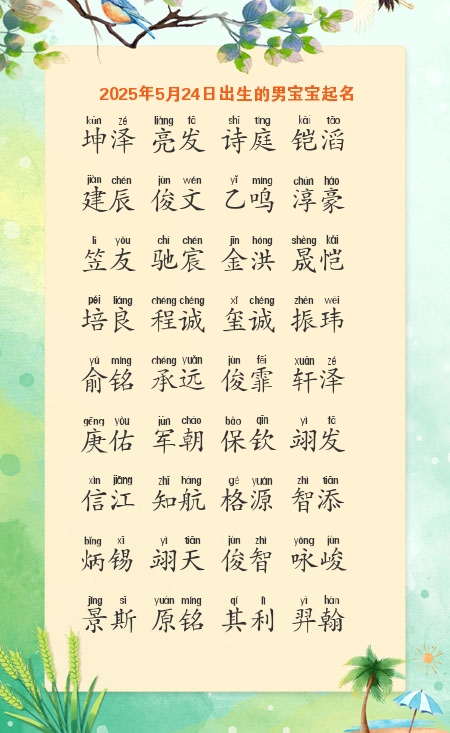 2025年5月24日出生的男宝宝起名
kūn zé liàng fā shī tíng kǎi tāo
坤泽 亮发 诗庭 铠滔
jiàn chén jùn wén yǐ míng chún háo
建辰 俊文 乙鸣 淳豪
lì yǒu chí chén jīn hóng shèng kǎi
笠友 驰宸 金洪 晟恺
péi liáng chéng chéng xǐ chéng zhèn wěi
培良 程诚 玺诚 振玮
yú míng chéng yuǎn jùn fēi xuān zé
俞铭 承远 俊霏 轩泽
gēng yòu jūn cháo bǎo qīn yì fā
庚佑 军朝 保钦 翊发
xìn jiāng zhī háng gé yuán zhì tiān
信江 知航 格源 智添
bǐng xī yì tiān jùn zhì yǒng jùn
炳锡 翊天 俊智 咏峻
jǐng sī yuán míng qí lì yì hàn
景斯 原铭 其利 羿翰